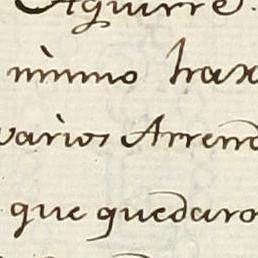 Aguirre.
mismo
varios Arren
que quedaro